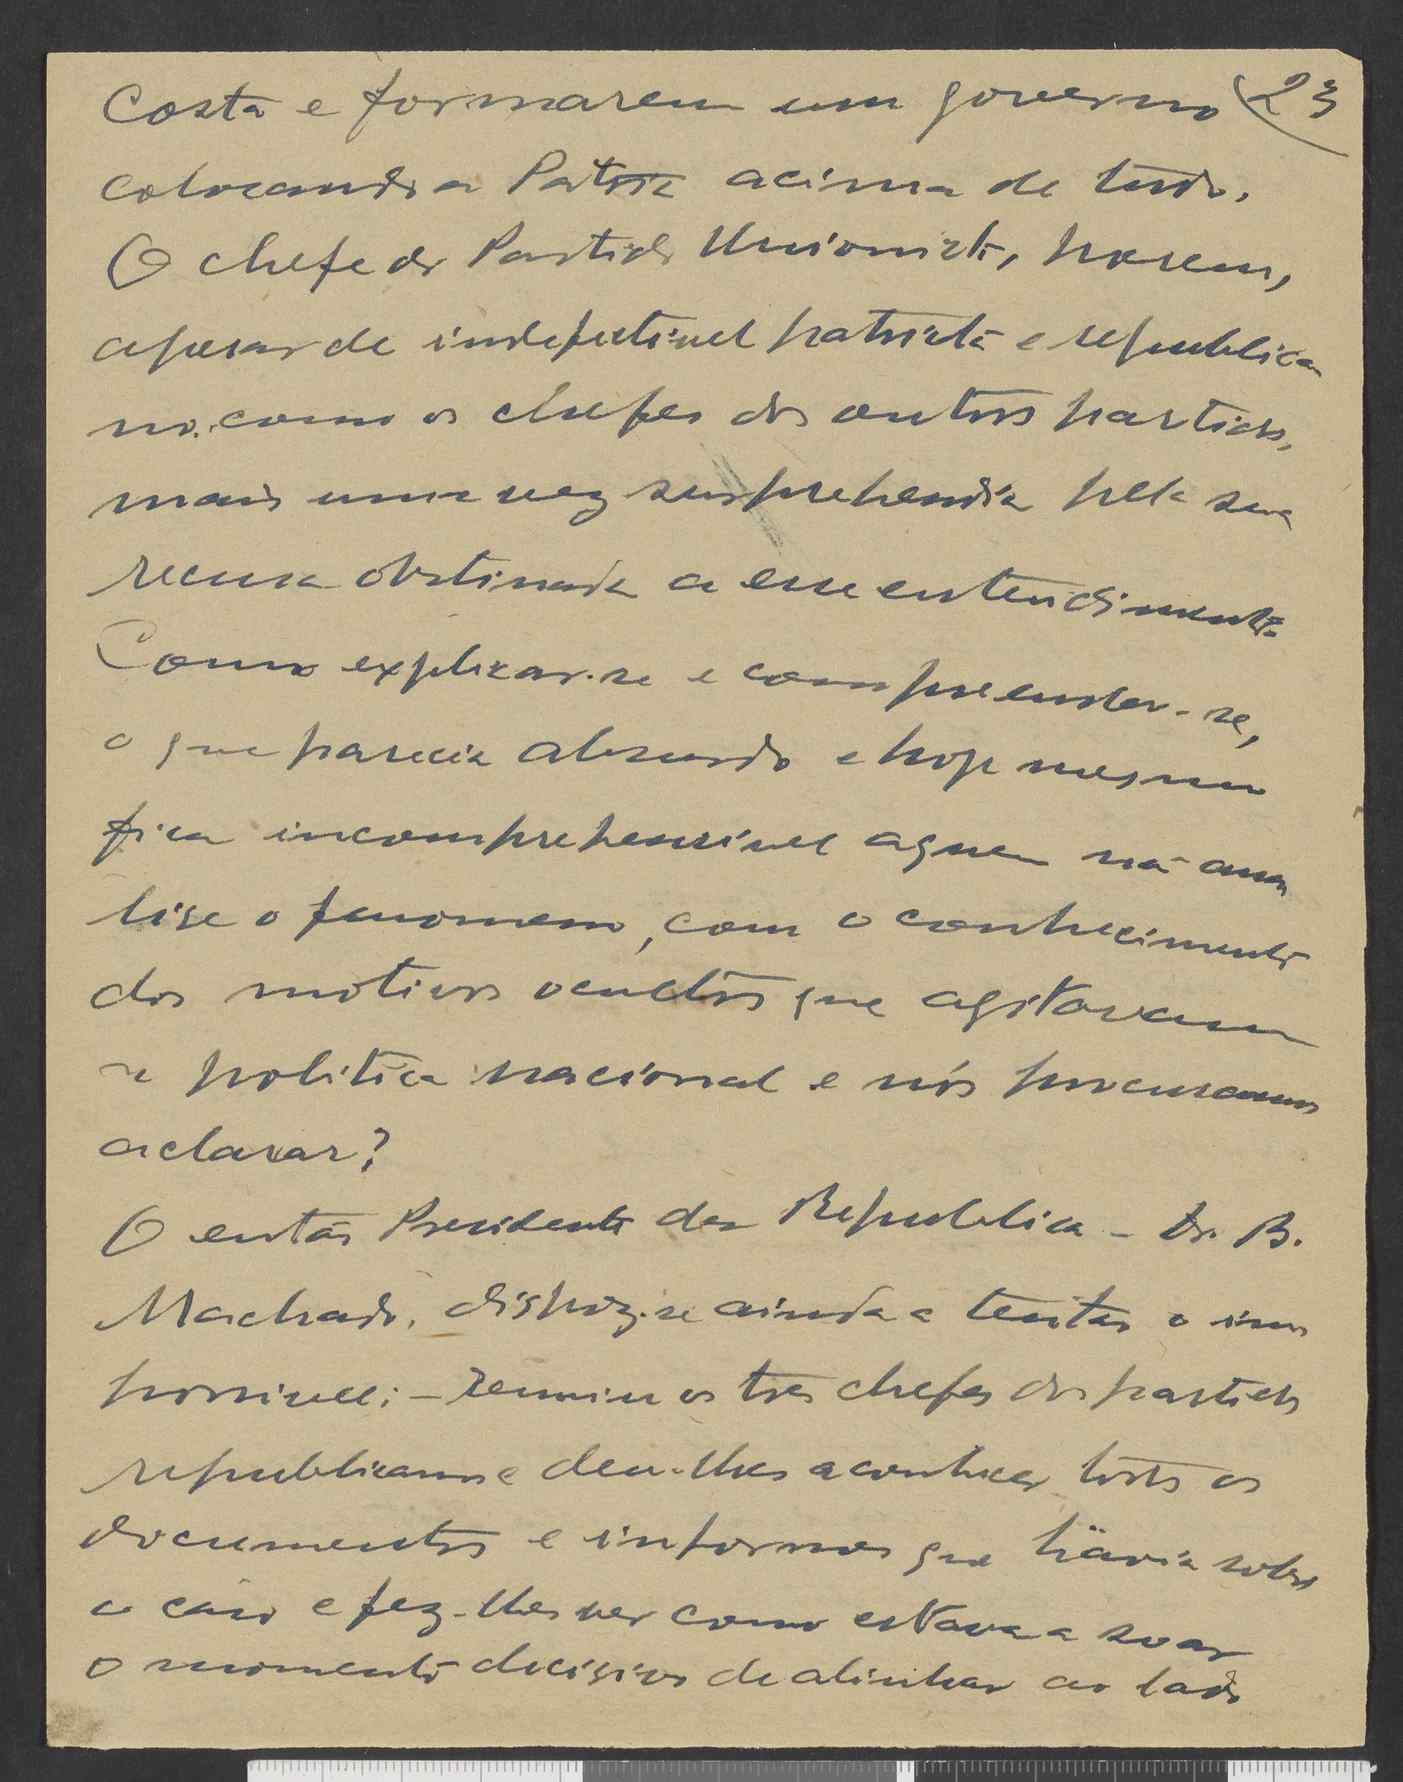 Costa e formarem um governo 23
colocando a Patria acima de tudo.
O chefe do Partido Unionista, porem,
apesar de indefectivel patriota e republica
no, como os chefes dos outros partidos,
mais uma vez surprehendia pela sua
recusa obstinada a esse entendimento.
Como explicar-se e compreender-se,
o que parecia absurdo e hoje mesmo
fica incomprehensivel a quem não ana
lise o fenomeno, com o conhecimento
dos motivos ocultos que agitavam
a politica nacional e nós procuramos
aclarar?
O então Presidente da Republica - Dr. B.
Machado, dispoz-se ainda a tentar o im
possivel: - reuniu os tres chefes dos partidos
republicanos e deu-lhes a conhecer todos os
documentos e informes que havia sobre
o caso e fez-lhes ver como estava a soar
o momento decisivo de alinhar ao lado